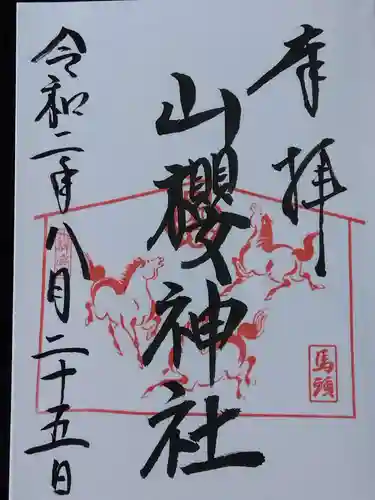 奉拝
山櫻神社
令和二年八月二十五日
馬頭